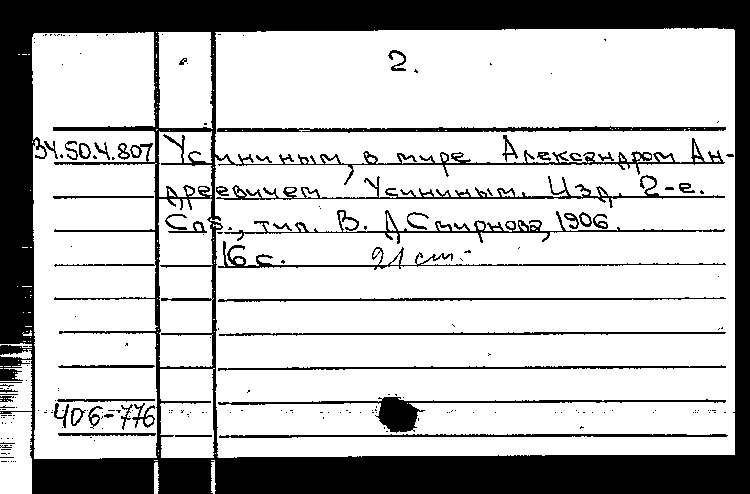 2.
34.50.4.807 Усининым, в мире Александром Ан-
дреевичем Усининым. Изд. 2-е.
Спб., тип. В. Д. Смирнова, 1906.
16 с. 21 cm.
Ч06-776